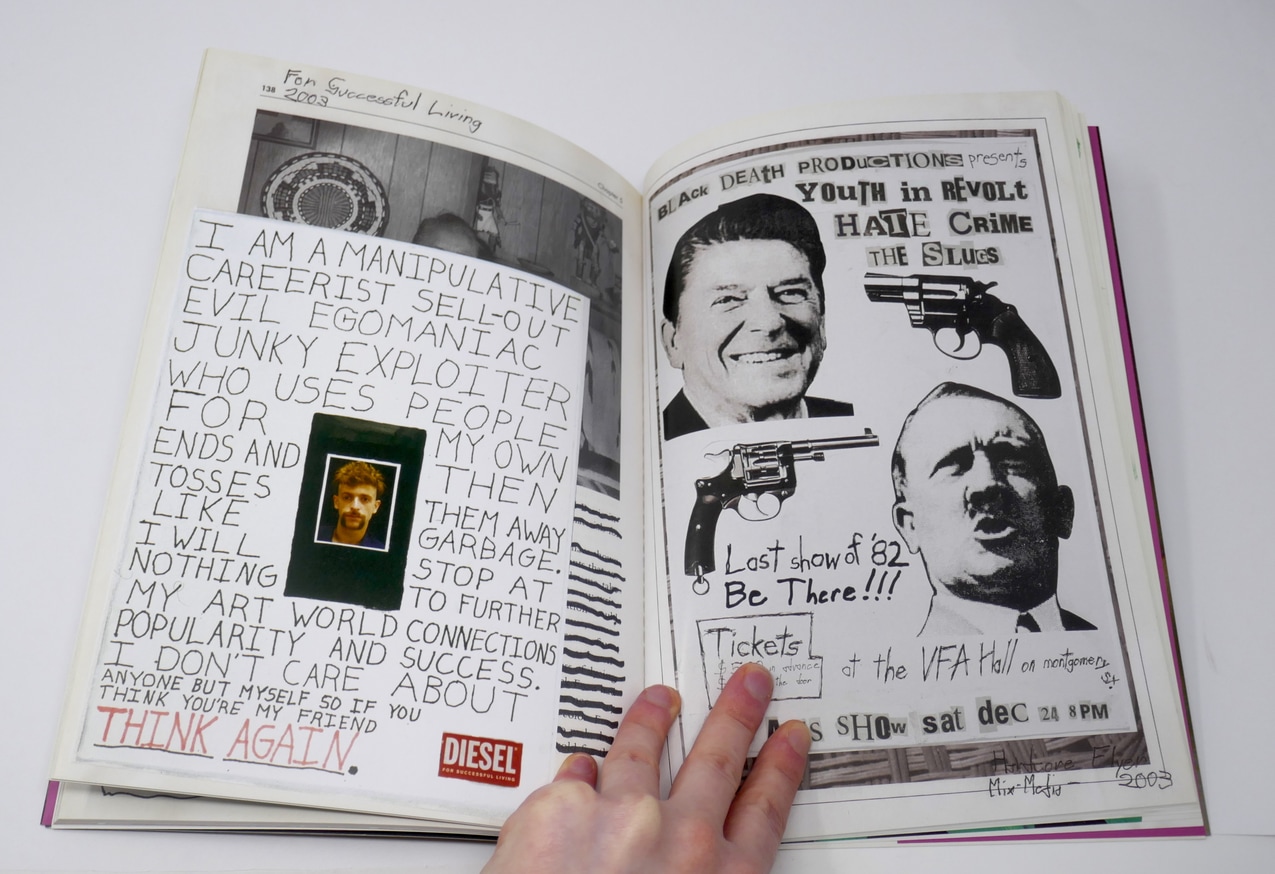 138
For Successful Living
2003
Chapter 5
I AM A MANIPULATIVE
CAREERIST SELL-OUT
EVIL EGOMANIAC
JUNKY EXPLOITER
WHO USES PEOPLE
FOR MY OWN
ENDS AND THEN
TOSSES THEM AWAY
LIKE GARBAGE.
I WILL STOP AT
NOTHING TO FURTHER
MY ART WORLD CONNECTIONS
POPULARITY AND SUCCESS.
I DON'T CARE ABOUT
ANYONE BUT MYSELF SO IF YOU
THINK YOU'RE MY FRIEND
THINK AGAIN.
DIESEL
FOR SUCCESSFUL LIVING
BLAck DEAtH PRODUcTIONS presents
YouTH in REVOLt
HATE CRiME
THE SLUGS
Last show of '82
Be There!!!
Tickets
in advance
the door
at the VFA Hall on montgomery St
SHOw sat dec 24 8PM
Hardcore Flyer
Mix-Media 2003